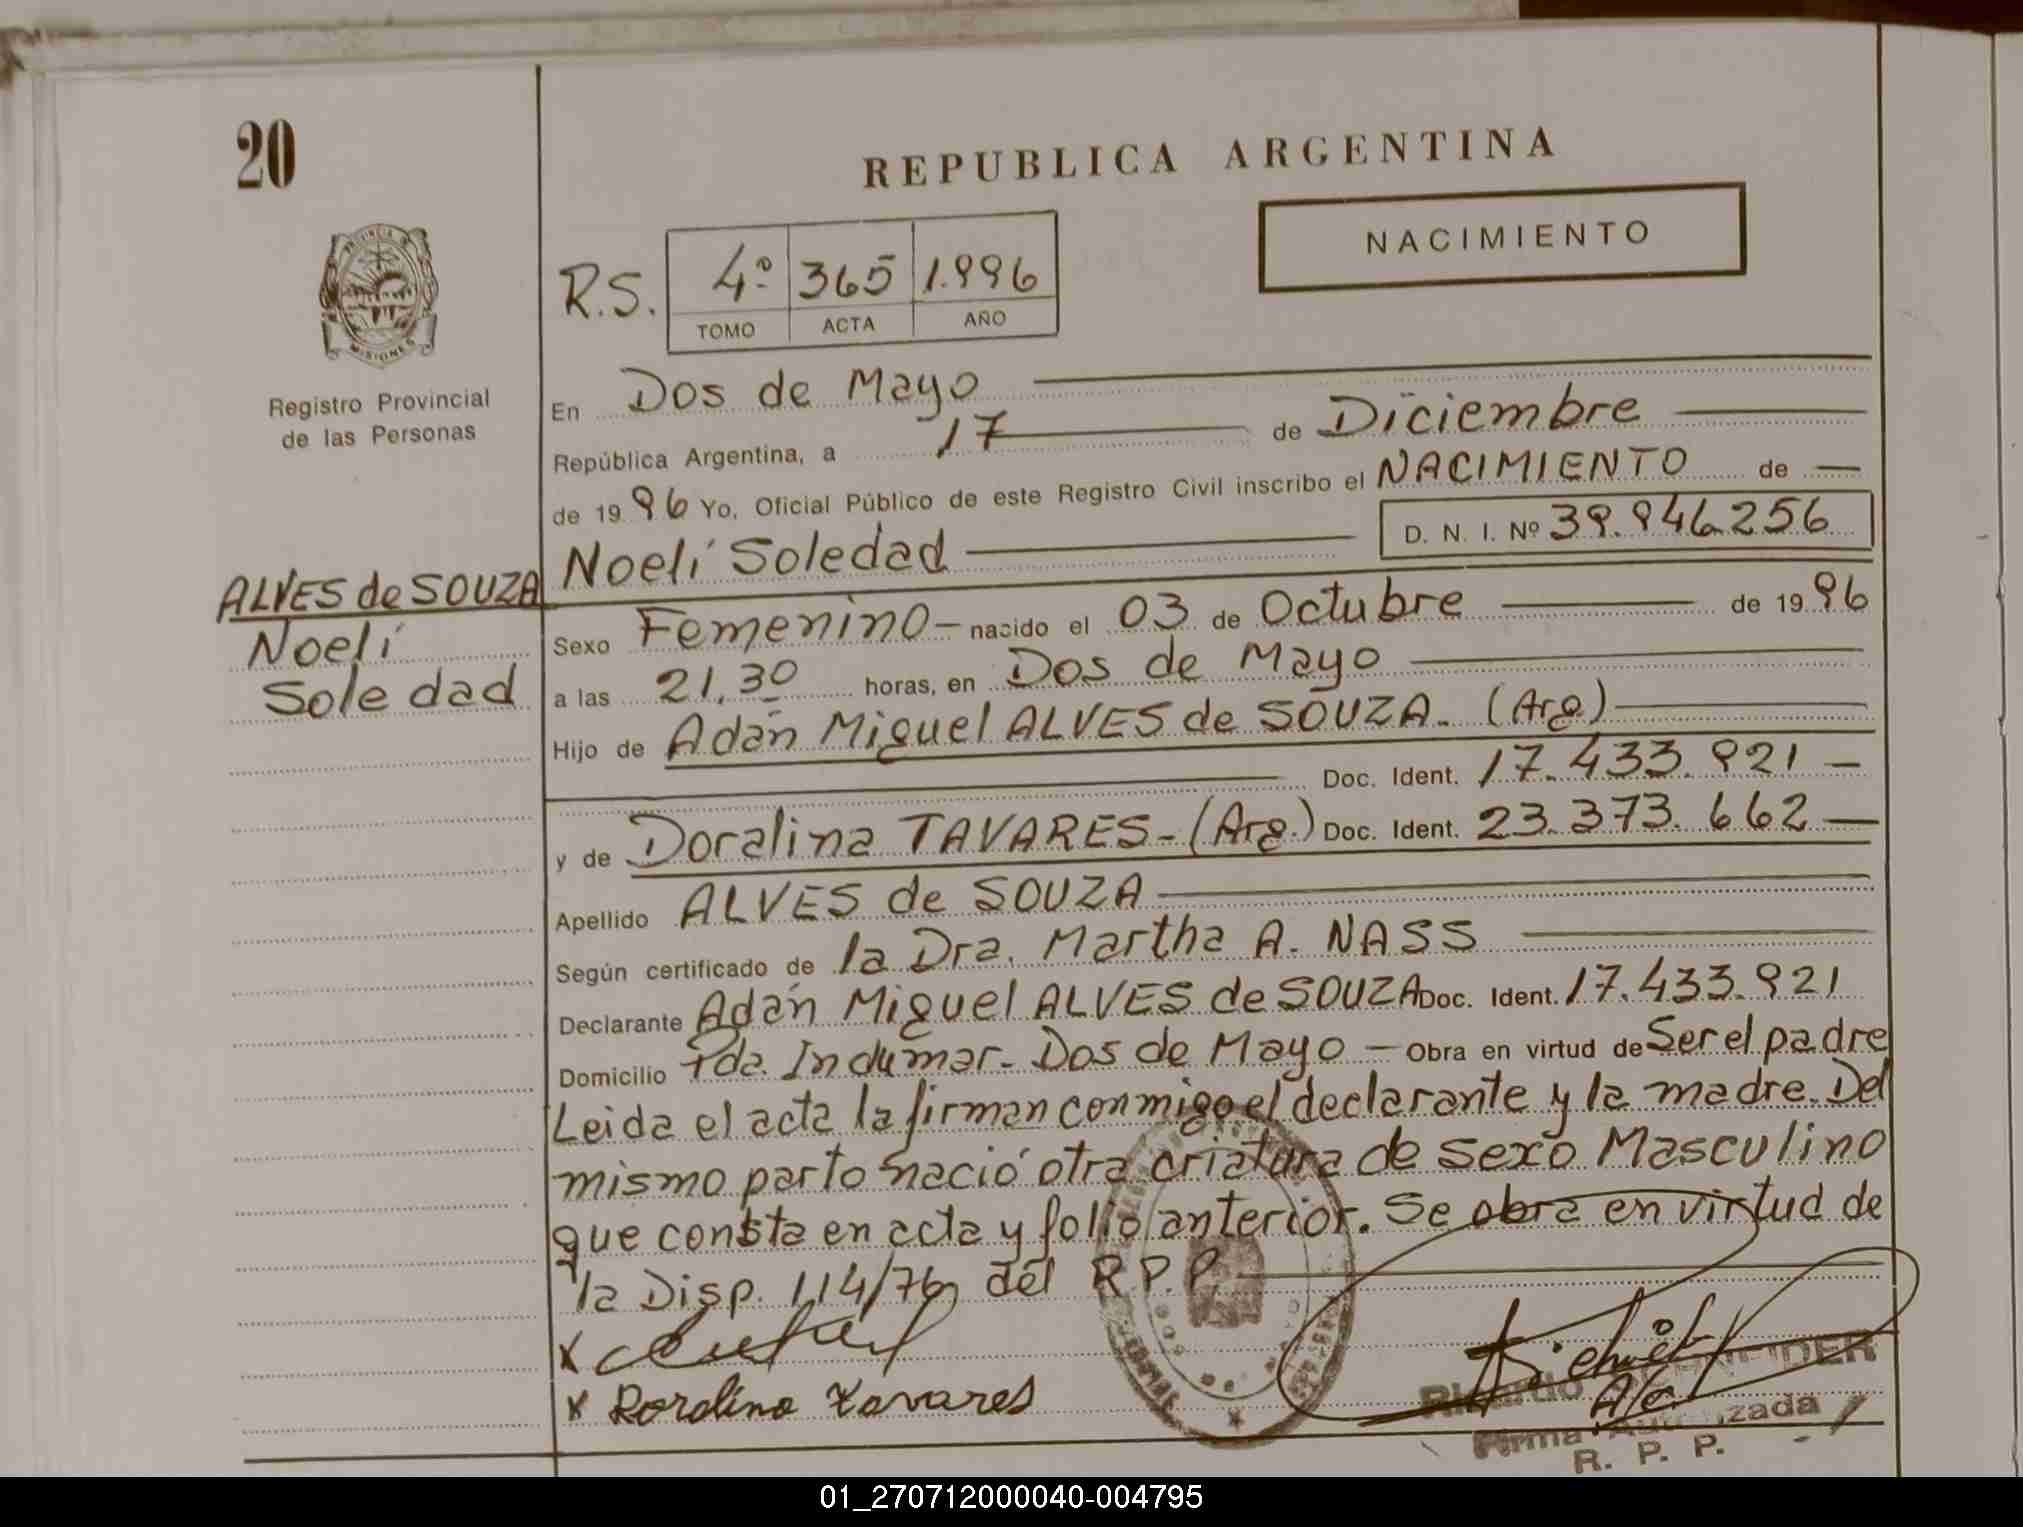 20
REPUBLICA ARGENTINA
NACIMIENTO
PROVINCIA DE MISIONES
Registro Provincial
de las Personas
R.S. 4º 365 1.996
TOMO ACTA AÑO
En Dos de Mayo
República Argentina, a 17 de Diciembre
de 1996 Yo, Oficial Público de este Registro Civil inscribo el NACIMIENTO de
Noelí Soledad D. N. I. Nº 39.946.256
ALVES de SOUZA
Noelí
Soledad
Sexo Femenino - nacido el 03 de Octubre de 1996
a las 21.30 horas, en Dos de Mayo
Hijo de Adán Miguel ALVES de SOUZA. (Arg)
Doc. Ident. 17.433.921
y de Doralina TAVARES - (Arg.) Doc. Ident. 23.373.662
Apellido ALVES de SOUZA
Según certificado de la Dra. Martha A. NASS
Declarante Adán Miguel ALVES de SOUZA Doc. Ident. 17.433.921
Domicilio Pda. Indumar - Dos de Mayo - Obra en virtud de Ser el padre
Leida el acta la firman conmigo el declarante y la madre. Del
mismo parto nació otra criatura de sexo Masculino
que consta en acta y folio anterior. Se obra en virtud de
la Disp. 114/76 del R.P.P.
x
x Dorolina Tavares
Ricardo SCHNEIDER
A/c.
Firma Autorizada
R. P. P.
01_270712000040-004795